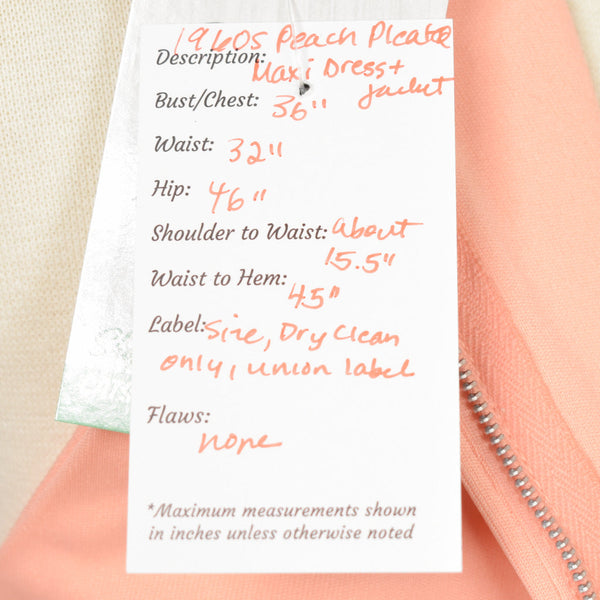 1960s Peach Pleated
Description: Maxi Dress +
Jacket
Bust/Chest: 36"
Waist: 32"
Hip: 46"
Shoulder to Waist: About
15.5"
Waist to Hem: 45"
Label: Size, Dry Clean
only, union label
Flaws:
none
*Maximum measurements shown
in inches unless otherwise noted